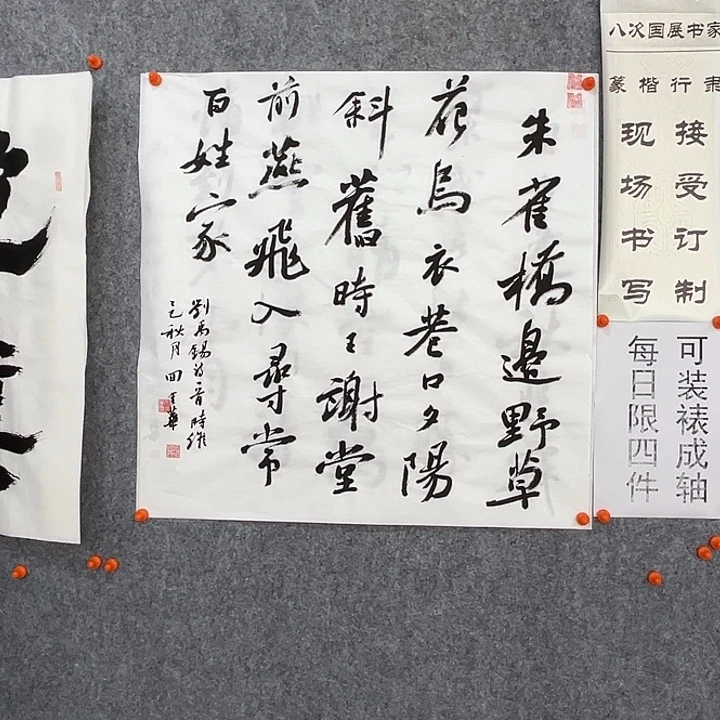 朱雀橋邊野草
花烏衣巷口夕陽
斜舊時王謝堂
前燕飛入尋常
百姓家
劉禹錫詩一首時維
乙巳秋月田
八次国展书家
篆楷行隶
接受订制
现场书写
可装裱成轴
每日限四件